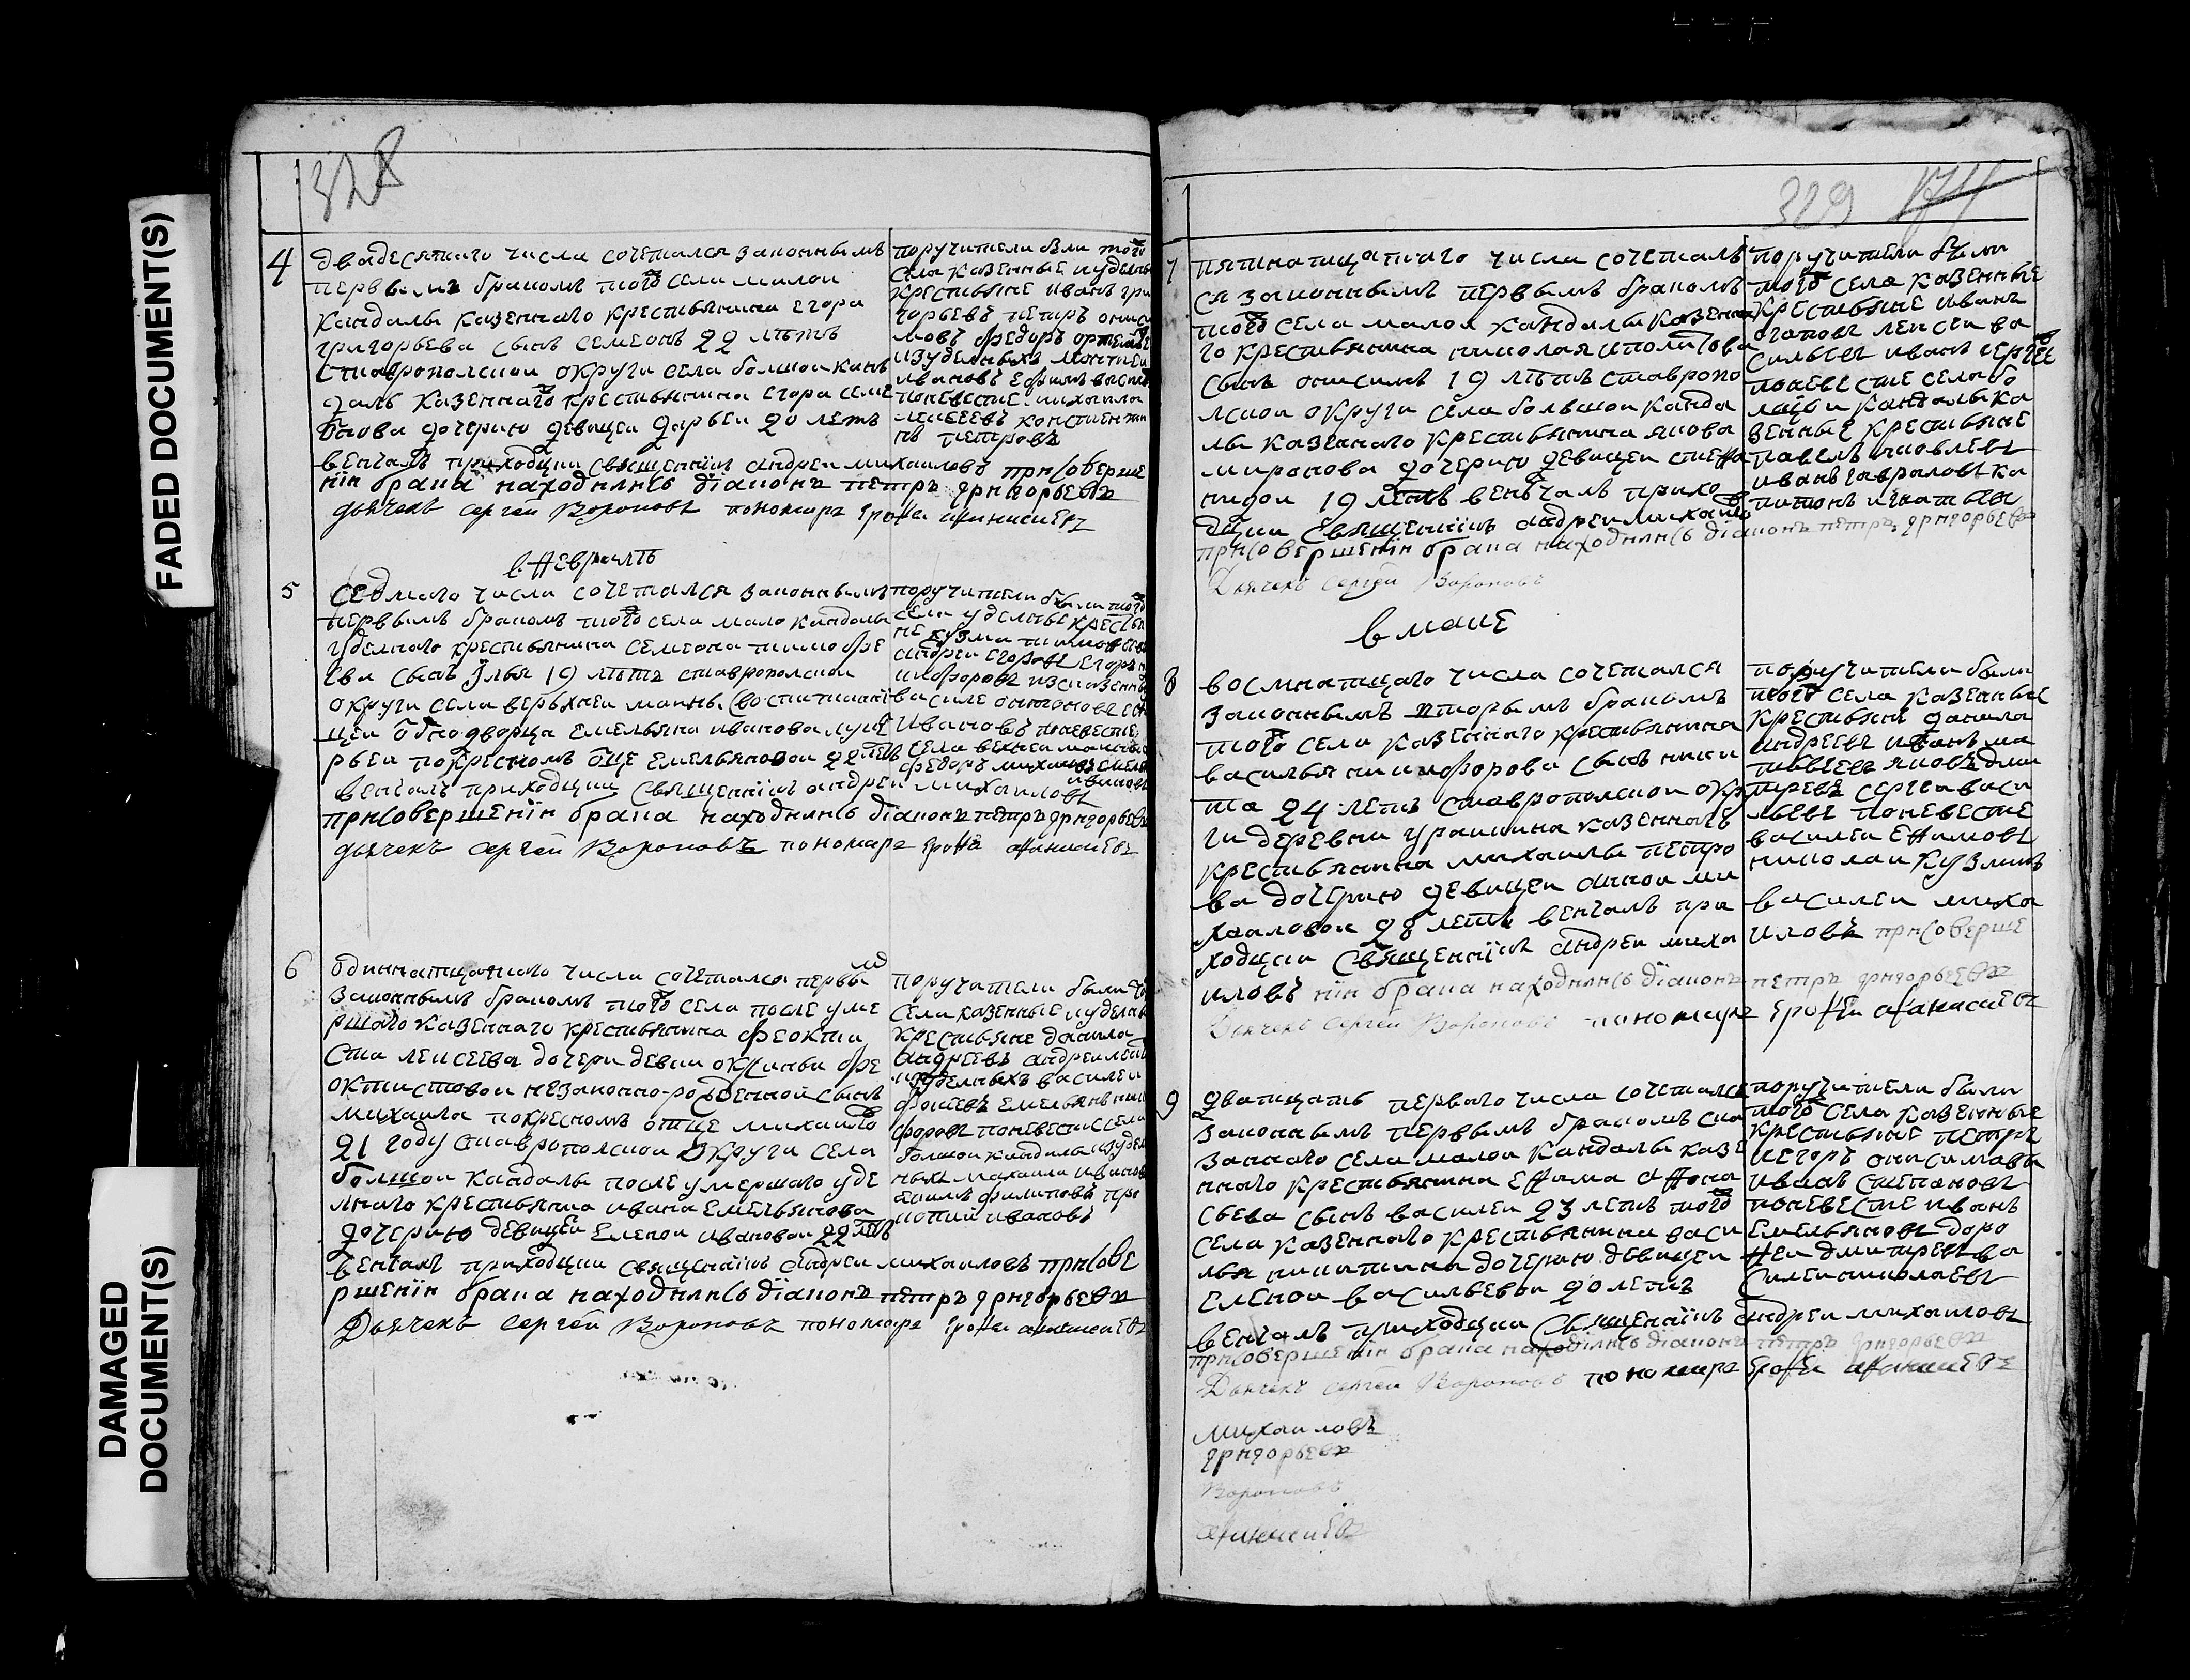 FADED DOCUMENT(S)
DAMAGED
DOCUMENT(S)
328
4
двадесятаго числа сочетался законнымъ
первымъ бракомъ того села малои
кандалы казеннаго крестьянина егора
григорьева сынъ семеонъ 22 летъ
ставропольскои округи села большои кан
далы казеннаго крестьянина егора
дочерию девицеи дарьеи 20 летъ
венчалъ приходцкии священникъ андреи михаиловъ при совѣрше
нiи брака находились дiаконъ петръ григорьевъ
дьячекъ сергей Вороновъ пономарь Ерофеи афанасиевъ
поручители были того
села казенные и удельные
крестьяне иванъ гри
горьевъ петръ ониси
мовъ федоръ
из удельныхъ
ивановъ ефимъ
по невесте михаила
констенти
нъ петровъ
в феврале
5
седмаго числа сочетался законнымъ
первымъ бракомъ того села мало кандалы
удельнаго крестьянина семеона тимофе
ева сынъ Илья 19 летъ ставропольскои
округи села верьхнеи маины
однодворца емельяна иванова луке
рьеи по кресномъ отце емельяновои 22 летъ
венчалъ приходцкии священникъ андреи михаиловъ
при совершенiи брака находились дiаконъ петръ григорьевъ
дьячекъ сергей Вороновъ пономарь Ерофеи афанасиевъ
поручители были того
села удельные крестья
не кузма
андреи егоровъ егоръ
никифоровъ
василе антоновъ
ивановъ по невесте
села
федоръ
ивановъ
6
одиннатцатаго числа сочетался первымъ
законнымъ бракомъ того села после уме
ршаго казеннаго крестьянина феокти
ста леисеева дочери девки оксиньи фе
октистовои незаконно-рожденной сынъ
михаила по кресномъ отце михаило
21 году ставропольскои округи села
большои кандалы после умершаго уде
льнаго крестьянина ивана емельянова
дочерию девицеи еленои ивановои 22 летъ
венчалъ приходцкии священникъ андреи михаиловъ при сове
ршенiи брака находились дiаконъ петръ григорьевъ
Дьячекъ Сергей Вороновъ пономарь Ерофеи афанасиевъ
поручители были того
села казенные и удельные
крестьяне данила
андреевъ андреи
удельныхъ василеи
емельянъ ники
форовъ по невесте села
большои кандалы удель
ныхъ михаила иванов
филиповъ про
копии ивановъ
329
7
пятинатцатаго числа сочеталъ
ся законнымъ первымъ бракомъ
того села малои кандалы казенна
го крестьянина николая иполитова
сынъ онисимъ 19 летъ ставропо
лскои округи села большои канда
лы казеннаго крестьянина якова
миронова дочерию девицеи степа
нидои 19 летъ венчалъ прихо
дцкии священникъ андреи михаило
при совершенiи брака находились дiаконъ петръ григорьевъ
Дьячекъ Сергей Вороновъ
поручители были
того села казенные
крестьяне иванъ
леисеи ва
сильевъ иванъ сергее
по невесте села бо
лшои кандалы ка
зенные крестьяне
павелъ яковлевъ
иванъ гавриловъ ка
питонъ игнатьевъ
в маие
8
восмнатцаго числа сочетался
законнымъ вторымъ бракомъ
того села казеннаго крестьянина
василья никифорова сынъ ники
та 24 летъ ставропольскои окру
ги деревни урайкина казеннаго
крестьянина михаилы петро
ва дочерию девицеи аннои ми
хаиловои 28 летъ венчалъ при
ходцкии священникъ андреи миха
иловъ нiи брака находились дiаконъ петръ григорьевъ
Дьячекъ Сергей Вороновъ пономарь Ерофеи афанасиевъ
поручители были
того села казенные
крестьяне данила
андреевъ иванъ ма
твеевъ яковъ дми
тревъ сергеи васи
льевъ по невесте
василеи ефимовъ
николаи кузминъ
василеи миха
иловъ при соверше
9
дватцать перваго числа сочетался
законнымъ первымъ бракомъ ска
заннаго села малои кандалы казе
ннаго крестьянина ефима афона
сьева сынъ василеи 23 летъ того
села казеннаго крестьянина васи
лья никитина дочерию девицеи
еленои васильевои 20 летъ
венчалъ приходцкии священникъ андреи михаиловъ
при совершенiи брака находились дiаконъ петръ григорьевъ
Дьячекъ Сергей Вороновъ пономарь Ерофеи афанасиевъ
поручители были
того села казенные
крестьяне петръ
и егоръ онисимовы
иванъ степановъ
по невесте иванъ
емельяновъ доро
феи дмитревъ ва
силеи николаевъ
михаиловъ
григорьевъ
Вороновъ
афанасиевъ